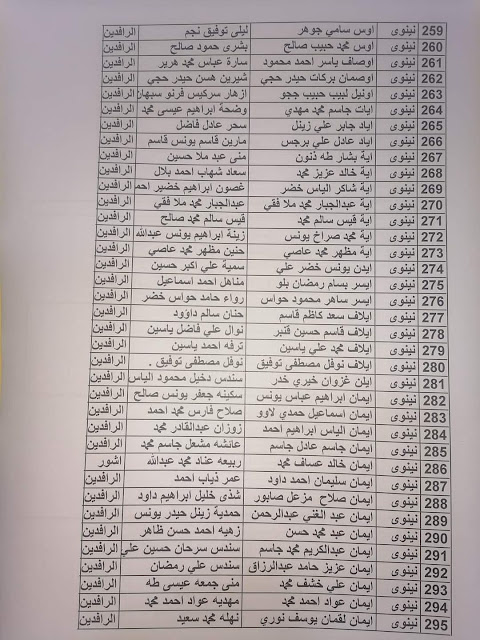 259 نينوى اوس سامي جوهر ليلى توفيق نجم الرافدين
260 نينوى اوس محمد حبيب صالح بشرى حمود صالح الرافدين
261 نينوى اوصاف ياسر احمد محمود سارة عباس محمد هرير الرافدين
262 نينوى اوصمان بركات حيدر حجي شيرين هسن حيدر حجي الرافدين
263 نينوى اونيل لبيب حبيب ججو ازهار سركيس فرنو سيهان الرافدين
264 نينوى ايات جاسم محمد مهدي وضحة ابراهيم عيسى محمد الرافدين
265 نينوى اياد جابر علي زينل سحر عادل فاضل الرافدين
266 نينوى اياد عادل علي برجس مارين قاسم يونس قاسم الرافدين
267 نينوى اية بشار طه ذنون منى عبد ملا حسين الرافدين
268 نينوى اية خالد عزيز محمد سعاد شهاب احمد بلال الرافدين
269 نينوى اية شاكر الياس خضر غصون ابراهيم خضير احمد الرافدين
270 نينوى اية عبدالجبار محمد ملا فقي عبدالجبار محمد ملا فقي الرافدين
271 نينوى اية قيس سالم محمد قيس سالم محمد صالح الرافدين
272 نينوى اية محمد صراخ يونس زينة ابراهيم يونس عبدالله الرافدين
273 نينوى اية مظهر محمد عاصي حنين مظهر محمد عاصي الرافدين
274 نينوى ايدن يونس خضر علي سمية علي اكبر حسين الرافدين
275 نينوى ايسر بسام رمضان بلو مناهل احمد اسماعيل الرافدين
276 نينوى ايسر ساهر محمود حواس رواء حامد حواس خضر الرافدين
277 نينوى ايلاف سعد كاظم قاسم حنان سالم داؤود الرافدين
278 نينوى ايلاف قاسم حسين قنبر نوال علي فاضل ياسين الرافدين
279 نينوى ايلاف محمد علي ياسين ترفه احمد ياسين الرافدين
280 نينوى ايلاف نوفل مصطفى توفيق نوفل مصطفى توفيق . الرافدين
281 نينوى ايلن غزوان خيري خدر سندس دخيل محمود الياس الرافدين
282 نينوى ايمان ابراهيم عباس يونس سكينه جعفر يونس صالح الرافدين
283 نينوى ايمان اسماعيل حمدي لاوو صلاح فارس محمد احمد الرافدين
284 نينوى ايمان الياس ابراهيم احمد زوزان عبدالقادر محمد الرافدين
285 نينوى ايمان جاسم عادل جاسم عائشه مشعل جاسم محمد الرافدين
286 نينوى ايمان خالد عساف محمد ربيعه عناد محمد عبدالله اشور
287 نينوى ايمان سليمان احمد داود عمر ذياب احمد الرافدين
288 نينوى ايمان صلاح مزعل صابور شذى خليل ابراهيم داود الرافدين
289 نينوى ايمان عبد الغني عبدالرحمن حمدية زينل حيدر يونس الرافدين
290 نينوى ايمان عبد محمد حسن زهيه احمد حسن ظاهر الرافدين
291 نينوى ايمان عبدالكريم محمد جاسم سندس سرحان حسين علي الرافدين
292 نينوى ايمان عزيز حامد عبدالرزاق سندس علي رمضان الرافدين
293 نينوى ايمان علي خشف محمد منى جمعه عيسى طه الرافدين
294 نينوى ايمان عواد احمد محمد مهديه عواد احمد محمد الرافدين
295 نينوى ايمان لقمان يوسف نوري نهله محمد سعيد الرافدين